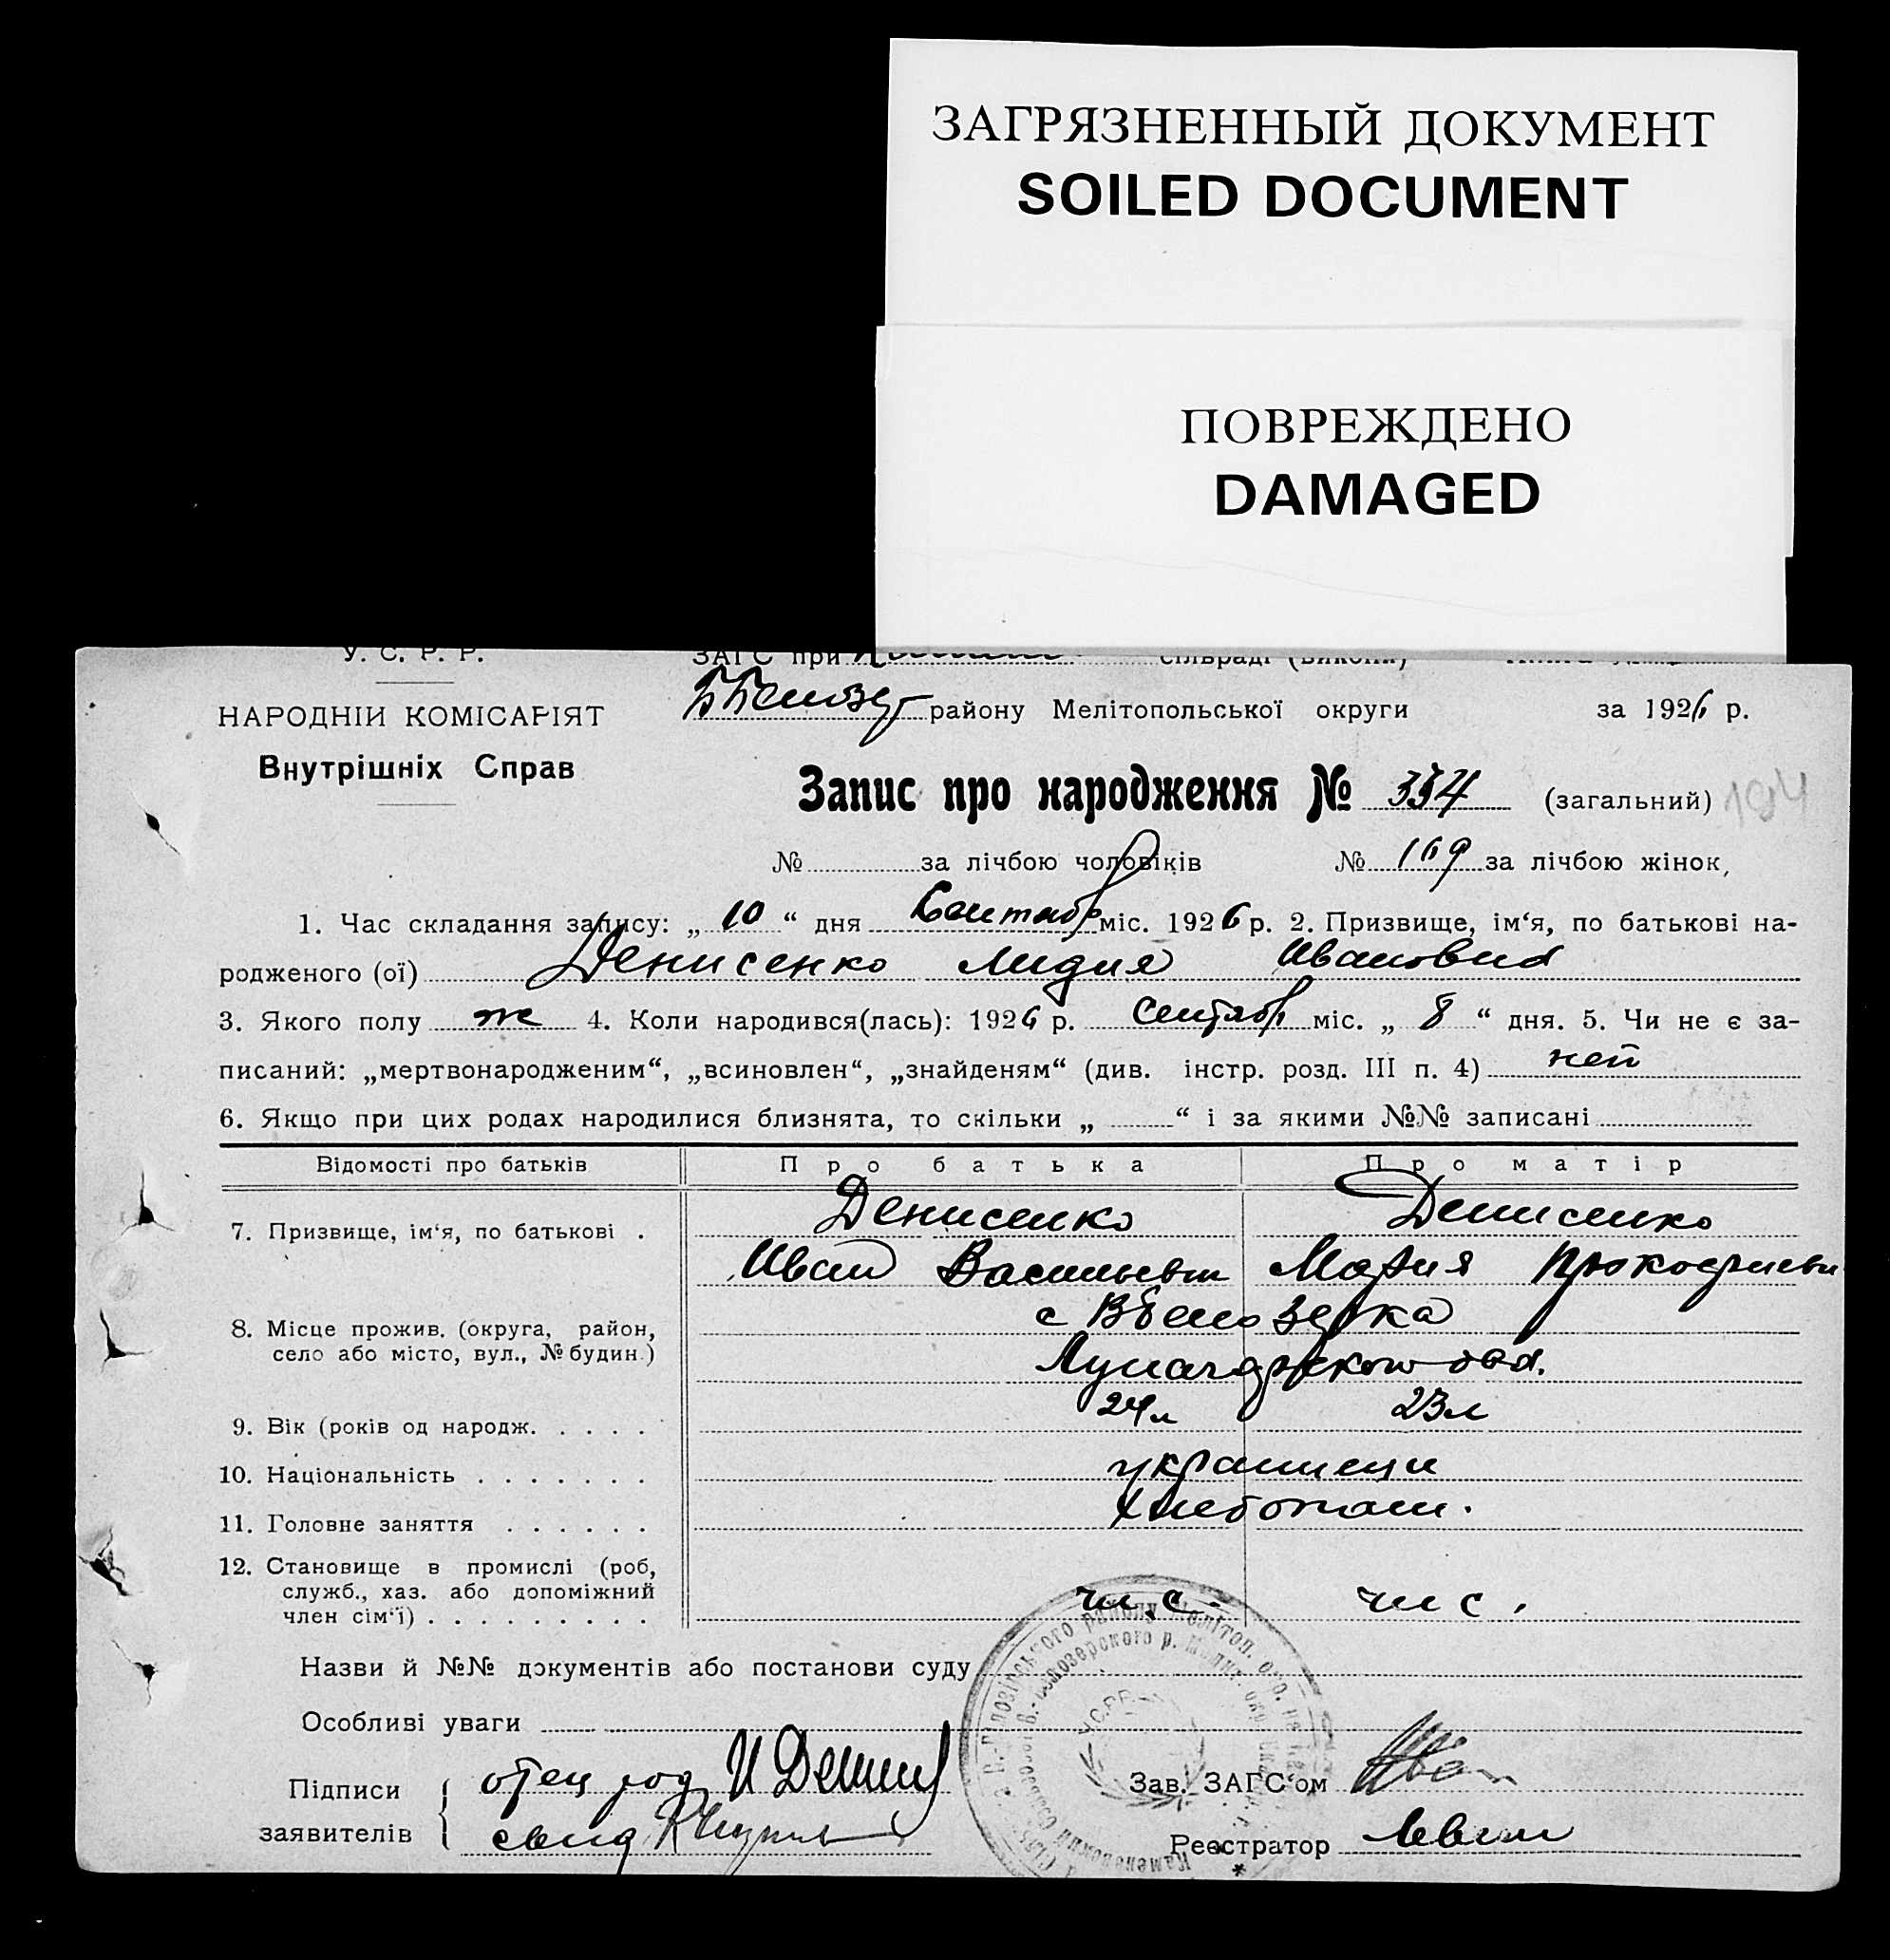 ЗАГРЯЗНЕННЫЙ ДОКУМЕНТ
SOILED DOCUMENT
ПОВРЕЖДЕНО
DAMAGED
У. С. Р. Р. ЗАГС при сільраді (викони)
НАРОДНІЙ КОМІСАРІЯТ району Мелітопольської округи за 1926 р.
Внутрішніх Справ
Запис про народження № 334 (загальний) 194
№ за лічбою чоловіків № 169 за лічбою жінок,
1. Час складання запису: „ 10 “ дня Сентябр міс. 1926 р. 2. Призвище, ім‘я, по батькові на-
родженого (ої) Денисенко Лидия Ивановна
3. Якого полу ж 4. Коли народився(лась): 1926 р. Сентябр міс. „ 8 “ дня. 5. Чи не є за-
писаний: „мертвонародженим“, „всиновлен“, „знайденям“ (див. інстр. розд. III п. 4) нет
6. Якщо при цих родах народилися близнята, то скільки „ “ і за якими №№ записані
Відомості про батьків Про батька Про матір
Денисенко Денисенко
7. Призвище, ім‘я, по батькові .
Иван Васильевич Мария Прокофиевн
с Вбелозерка
8. Місце прожив. (округа, район,
село або місто, вул., № будин.)
24л 23л
9. Вік (років од народж. . . . .
10. Національність . . . . . . . украинци
11. Головне заняття . . . . . . хлебопаш.
12. Становище в промислі (роб,
служб., хаз. або допоміжний
член сім‘ї) . . . . . . . . . чл.с. чл с.
Назви й №№ документів або постанови суду
Особливі уваги
У.С.Р.Р.
Підписи отец род И Денис
Зав. ЗАГС‘ом
заявителів
Реєстратор